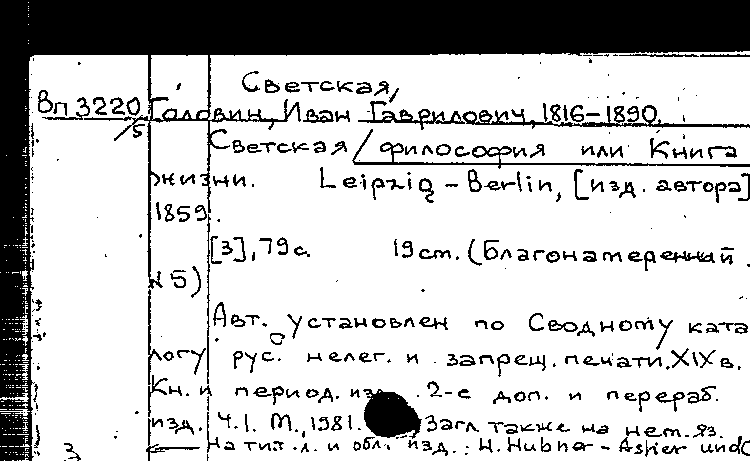 Светская,
Вп 3220 Головин, Иван Гаврилович, 1816-1890.
/5
Светская / философия или Книга
жизни. Leipzig - Berlin, [изд. автора]
1859.
[3], 79 с. 19 см. (Благонамеренный.
N 5)
Авт. установлен по Сводному ката
логу рус. нелег. и запрещ. печати XIX в.
Кн. и период. изд. 2-е доп. и перераб.
изд. Ч.I. М., 1981. Загл. также на нем. яз.
3 На тит. л. и обл. изд.: H. Hübner - Asher und C